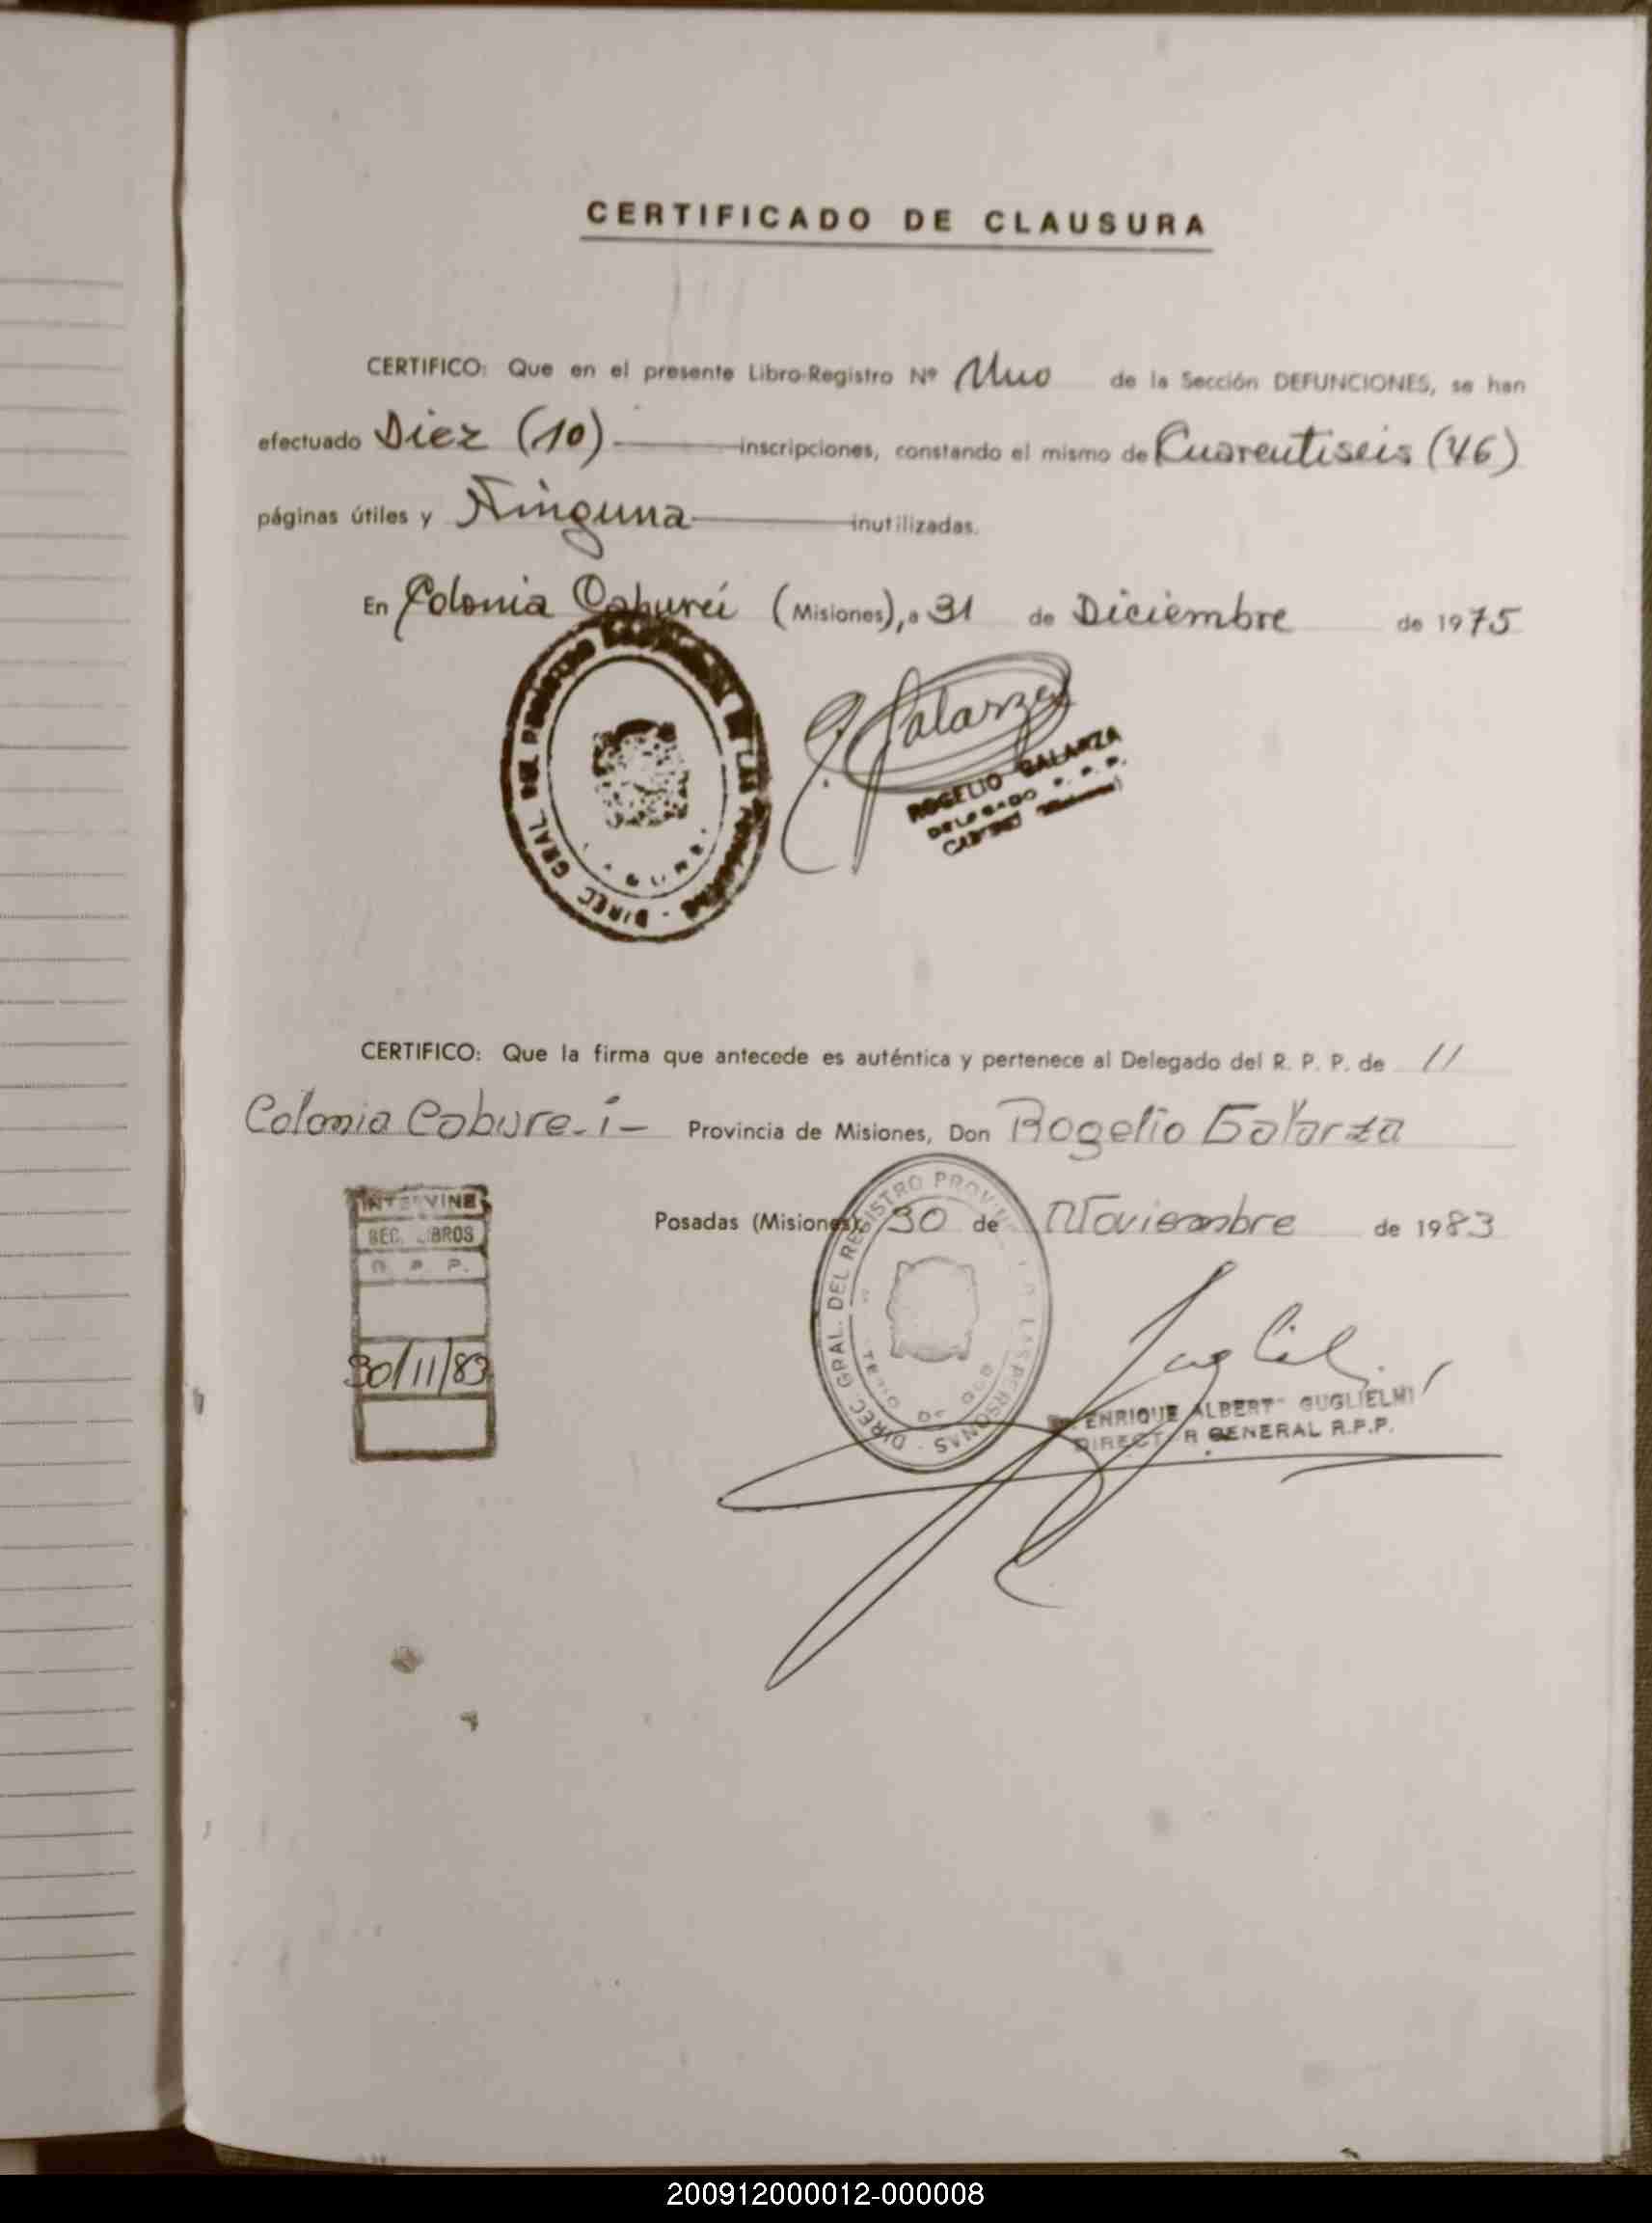 CERTIFICADO DE CLAUSURA
CERTIFICO: Que en el presente Libro-Registro Nº Uno de la Sección DEFUNCIONES, se han
efectuado Diez (10) inscripciones, constando el mismo de Cuarentiseis (46)
páginas útiles y Ninguna inutilizadas.
En Colonia Caburei (Misiones), a 31 de Diciembre de 1975
DIREC. GRAL. DEL REGISTRO DE LAS
R. Galarza
ROGELIO GALARZA
DELEGADO R. P. P.
CERTIFICO: Que la firma que antecede es auténtica y pertenece al Delegado del R. P. P. de //
Colonia Cabure-i- Provincia de Misiones, Don Rogelio Galarza
Posadas (Misiones), 30 de Noviembre de 1983
INTERVINE
SEC. LIBROS
R. P. P.
30/11/83
DIREC. GRAL. DEL REGISTRO PROV. LAS PERSONAS
ENRIQUE ALBERT GUGLIELMI
DIRECTOR GENERAL R.P.P.
200912000012-000008